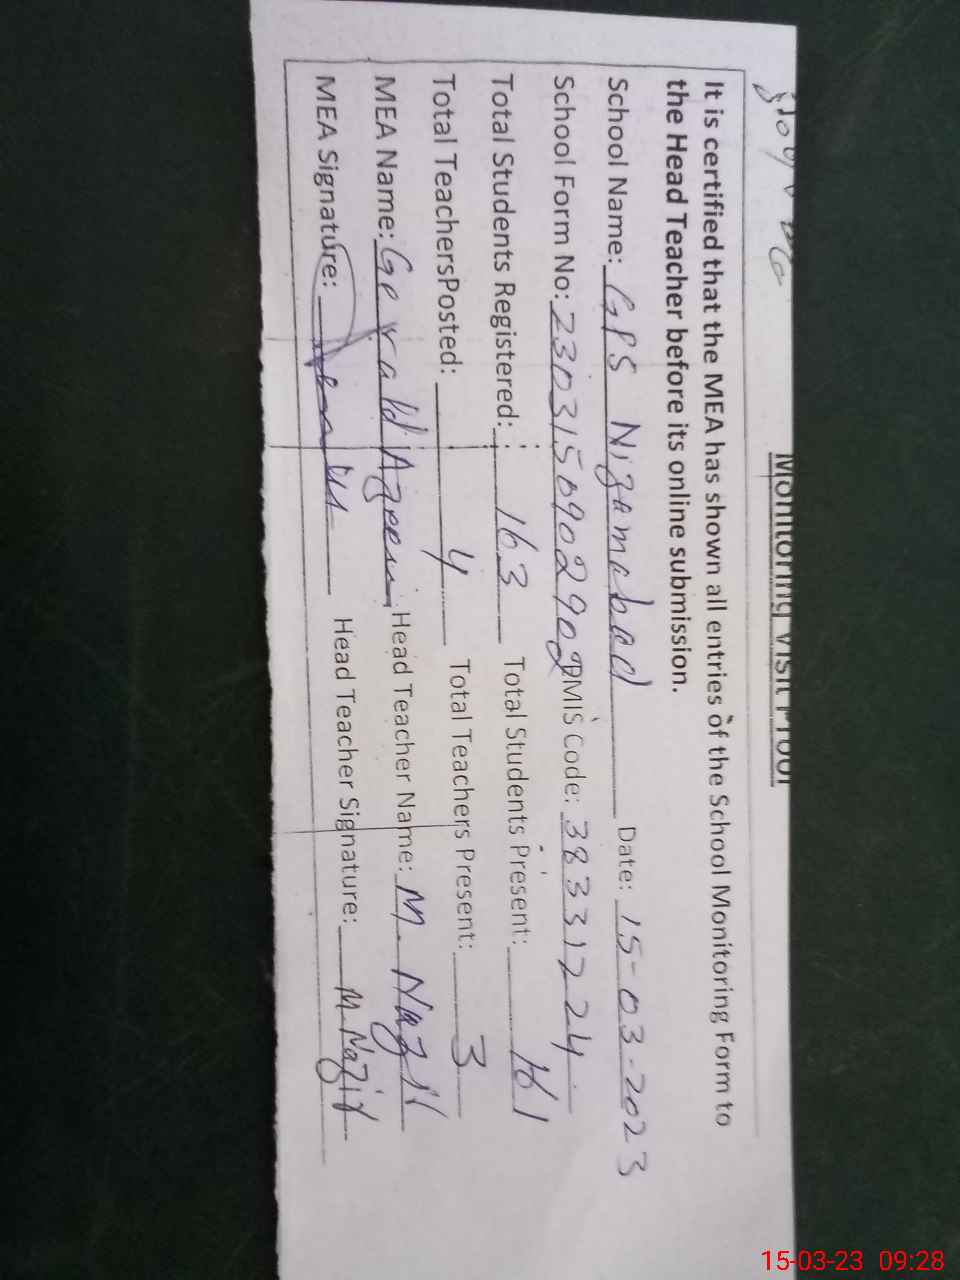 Monitoring Visit Proof
It is certified that the MEA has shown all entries of the School Monitoring Form to
the Head Teacher before its online submission.
School Name: GPS Nizamabad Date: 15-03-2023
School Form No: 2303150902902 EMIS Code: 38331224
Total Students Registered: 163 Total Students Present: 161
Total TeachersPosted: 4 Total Teachers Present: 3
MEA Name: Gerald Ageem Head Teacher Name: M. Nazir
MEA Signature: Head Teacher Signature: M. Nazir
15-03-23 09:28